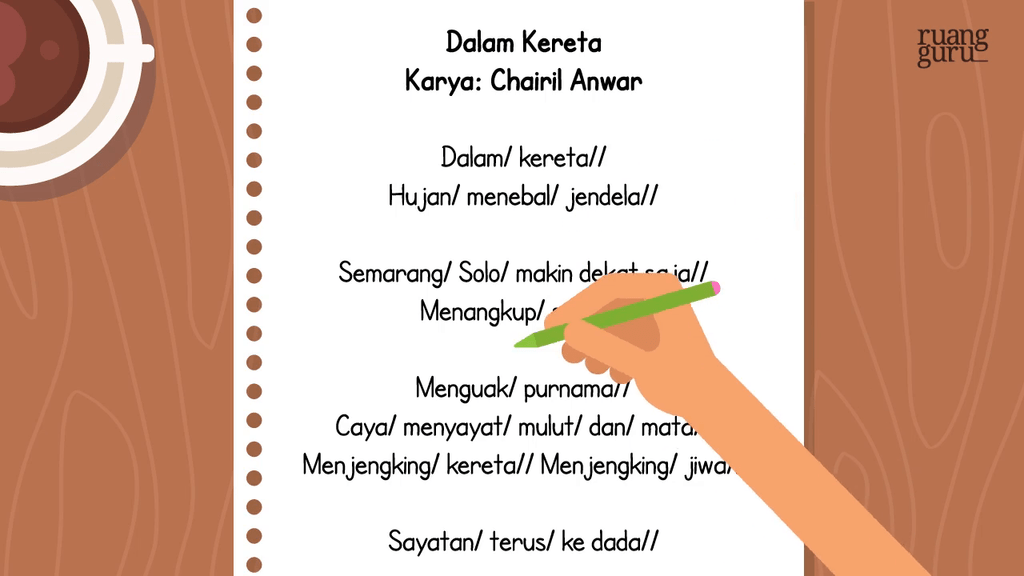 Dalam Kereta
Karya: Chairil Anwar
Dalam/ kereta//
Hujan/ menebal/ jendela//
Semarang/ Solo/ makin dekat saja//
Menangkup/
Menguak/ purnama//
Caya/ menyayat/ mulut/ dan/ mata/
Menjengking/ kereta// Menjengking/ jiwa/
Sayatan/ terus/ ke dada//
ruang
guru